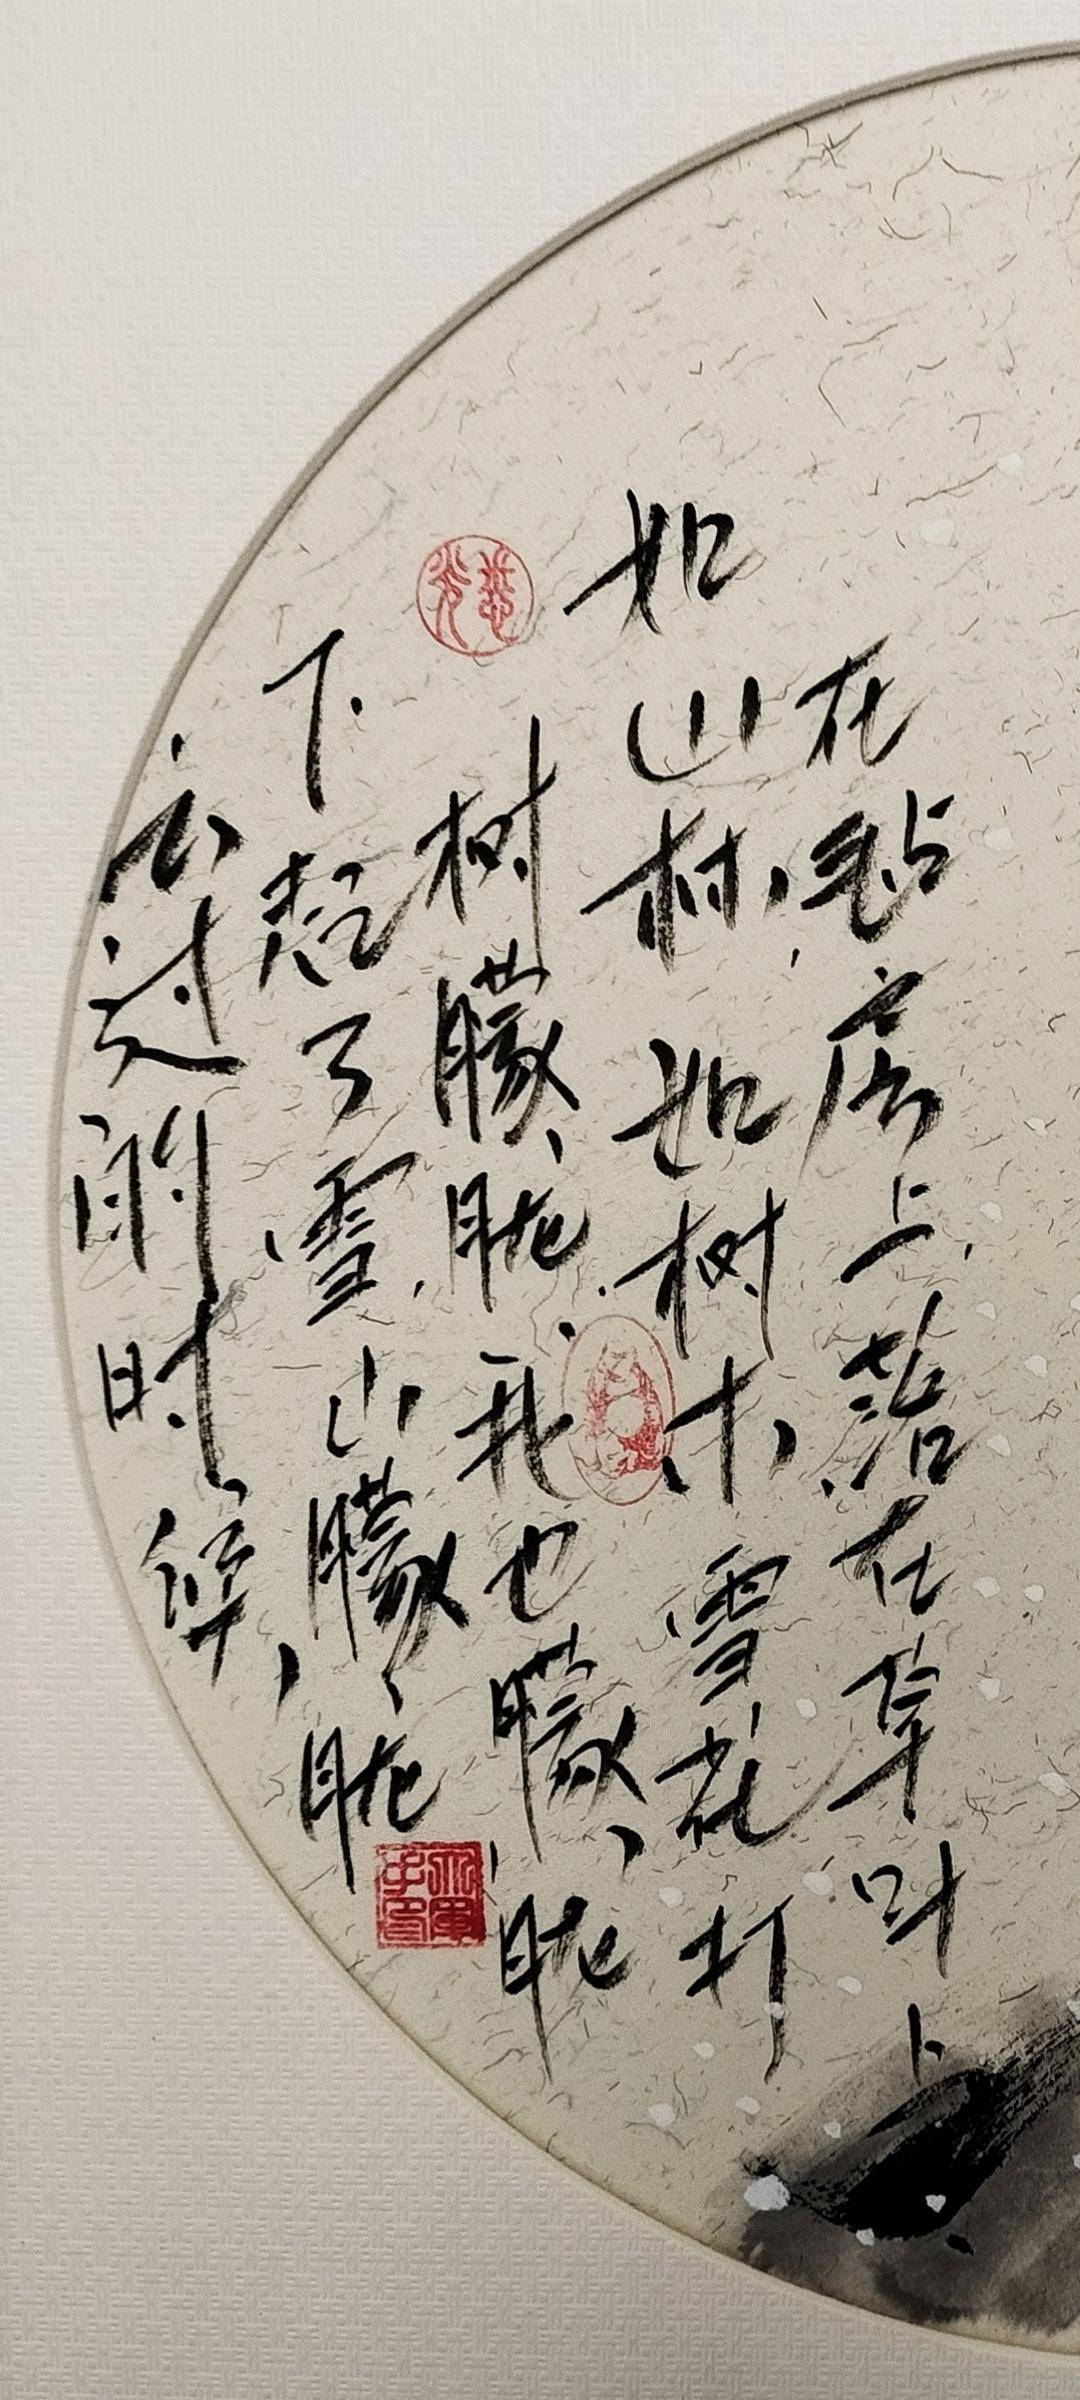 过时候，
下起了雪，山朦、胧
树朦、胧，我也朦、胧
如山村，如树木，雪花打
在毡房上，落在草叶上